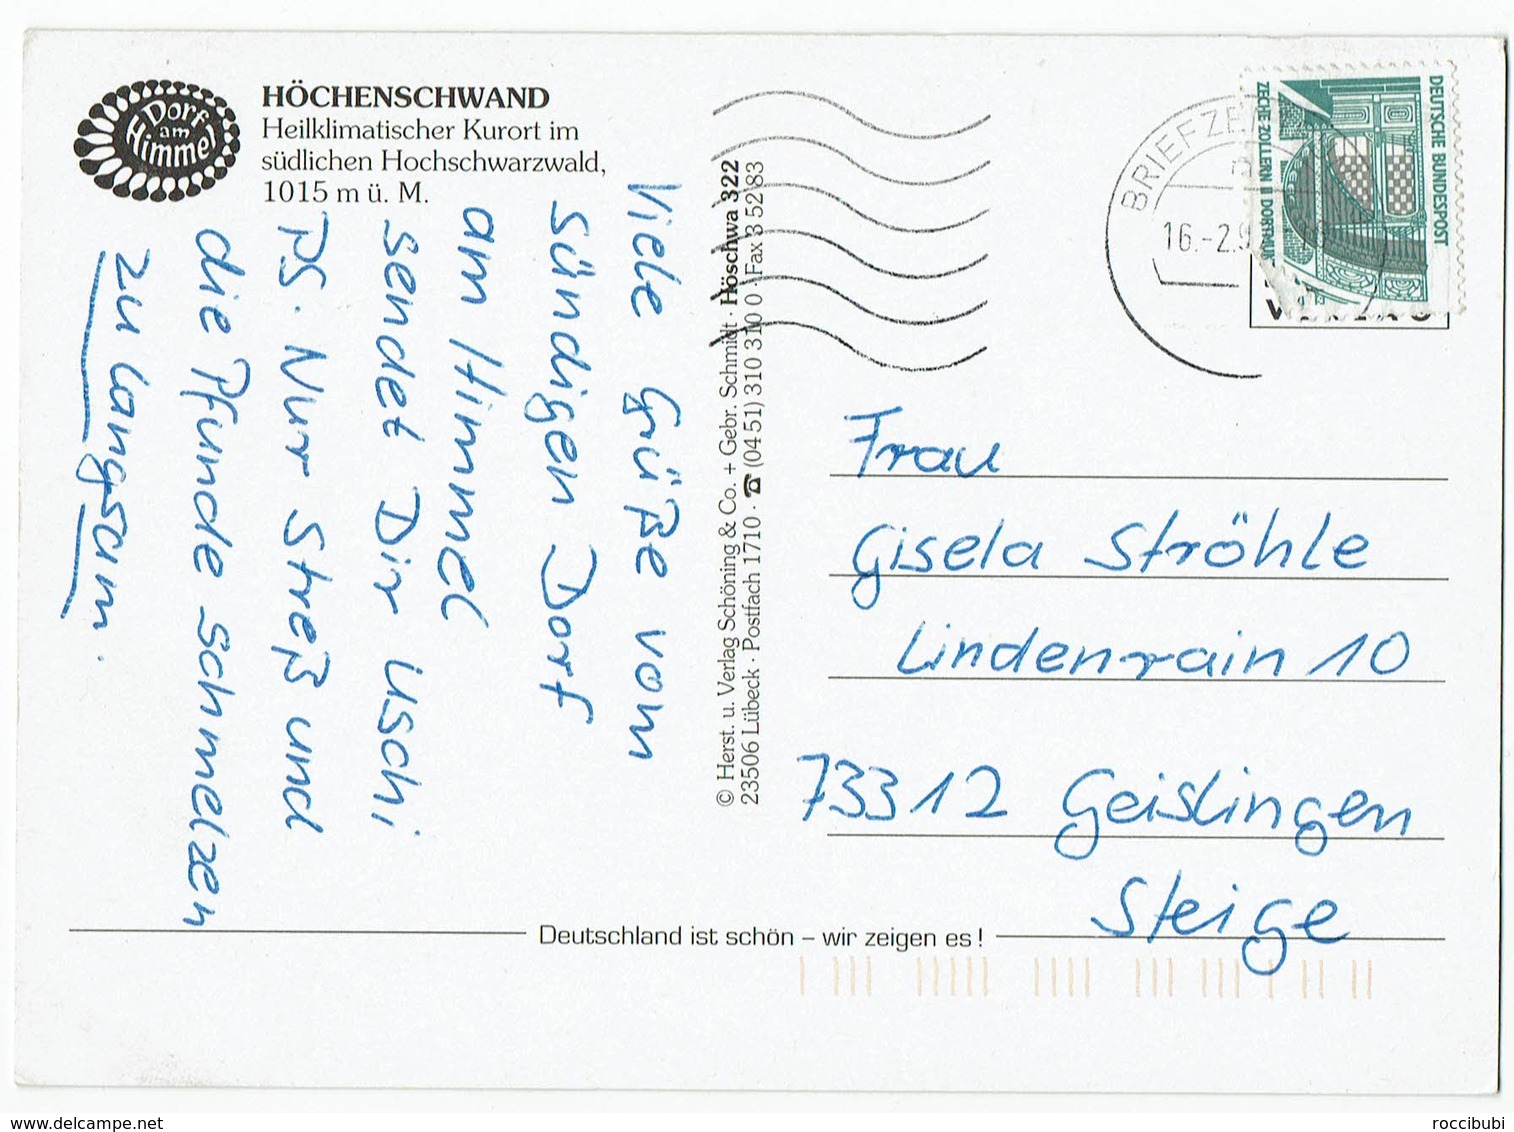 Dorf
am
Himmel
HÖCHENSCHWAND
Heilklimatischer Kurort im
südlichen Hochschwarzwald,
1015 m ü. M.
Viele Grüße vom
sündigen Dorf
am Himmel
sendet Dir Uschi
PS. Nur Streß und
die Pfunde schmelzen
zu langsam.
© Herst. u. Verlag Schöning & Co. + Gebr. Schmidt · Höschwa 322
23506 Lübeck · Postfach 1710 · ☎ (04 51) 310 310 0 · Fax 3 52 83
BRIEFZE
16.-2.9
DEUTSCHE BUNDESPOST
ZECHE ZOLLERN II DORTMUND
Frau
Gisela Ströhle
Lindenrain 10
73312 Geislingen
Steige
Deutschland ist schön – wir zeigen es!
roccibubi